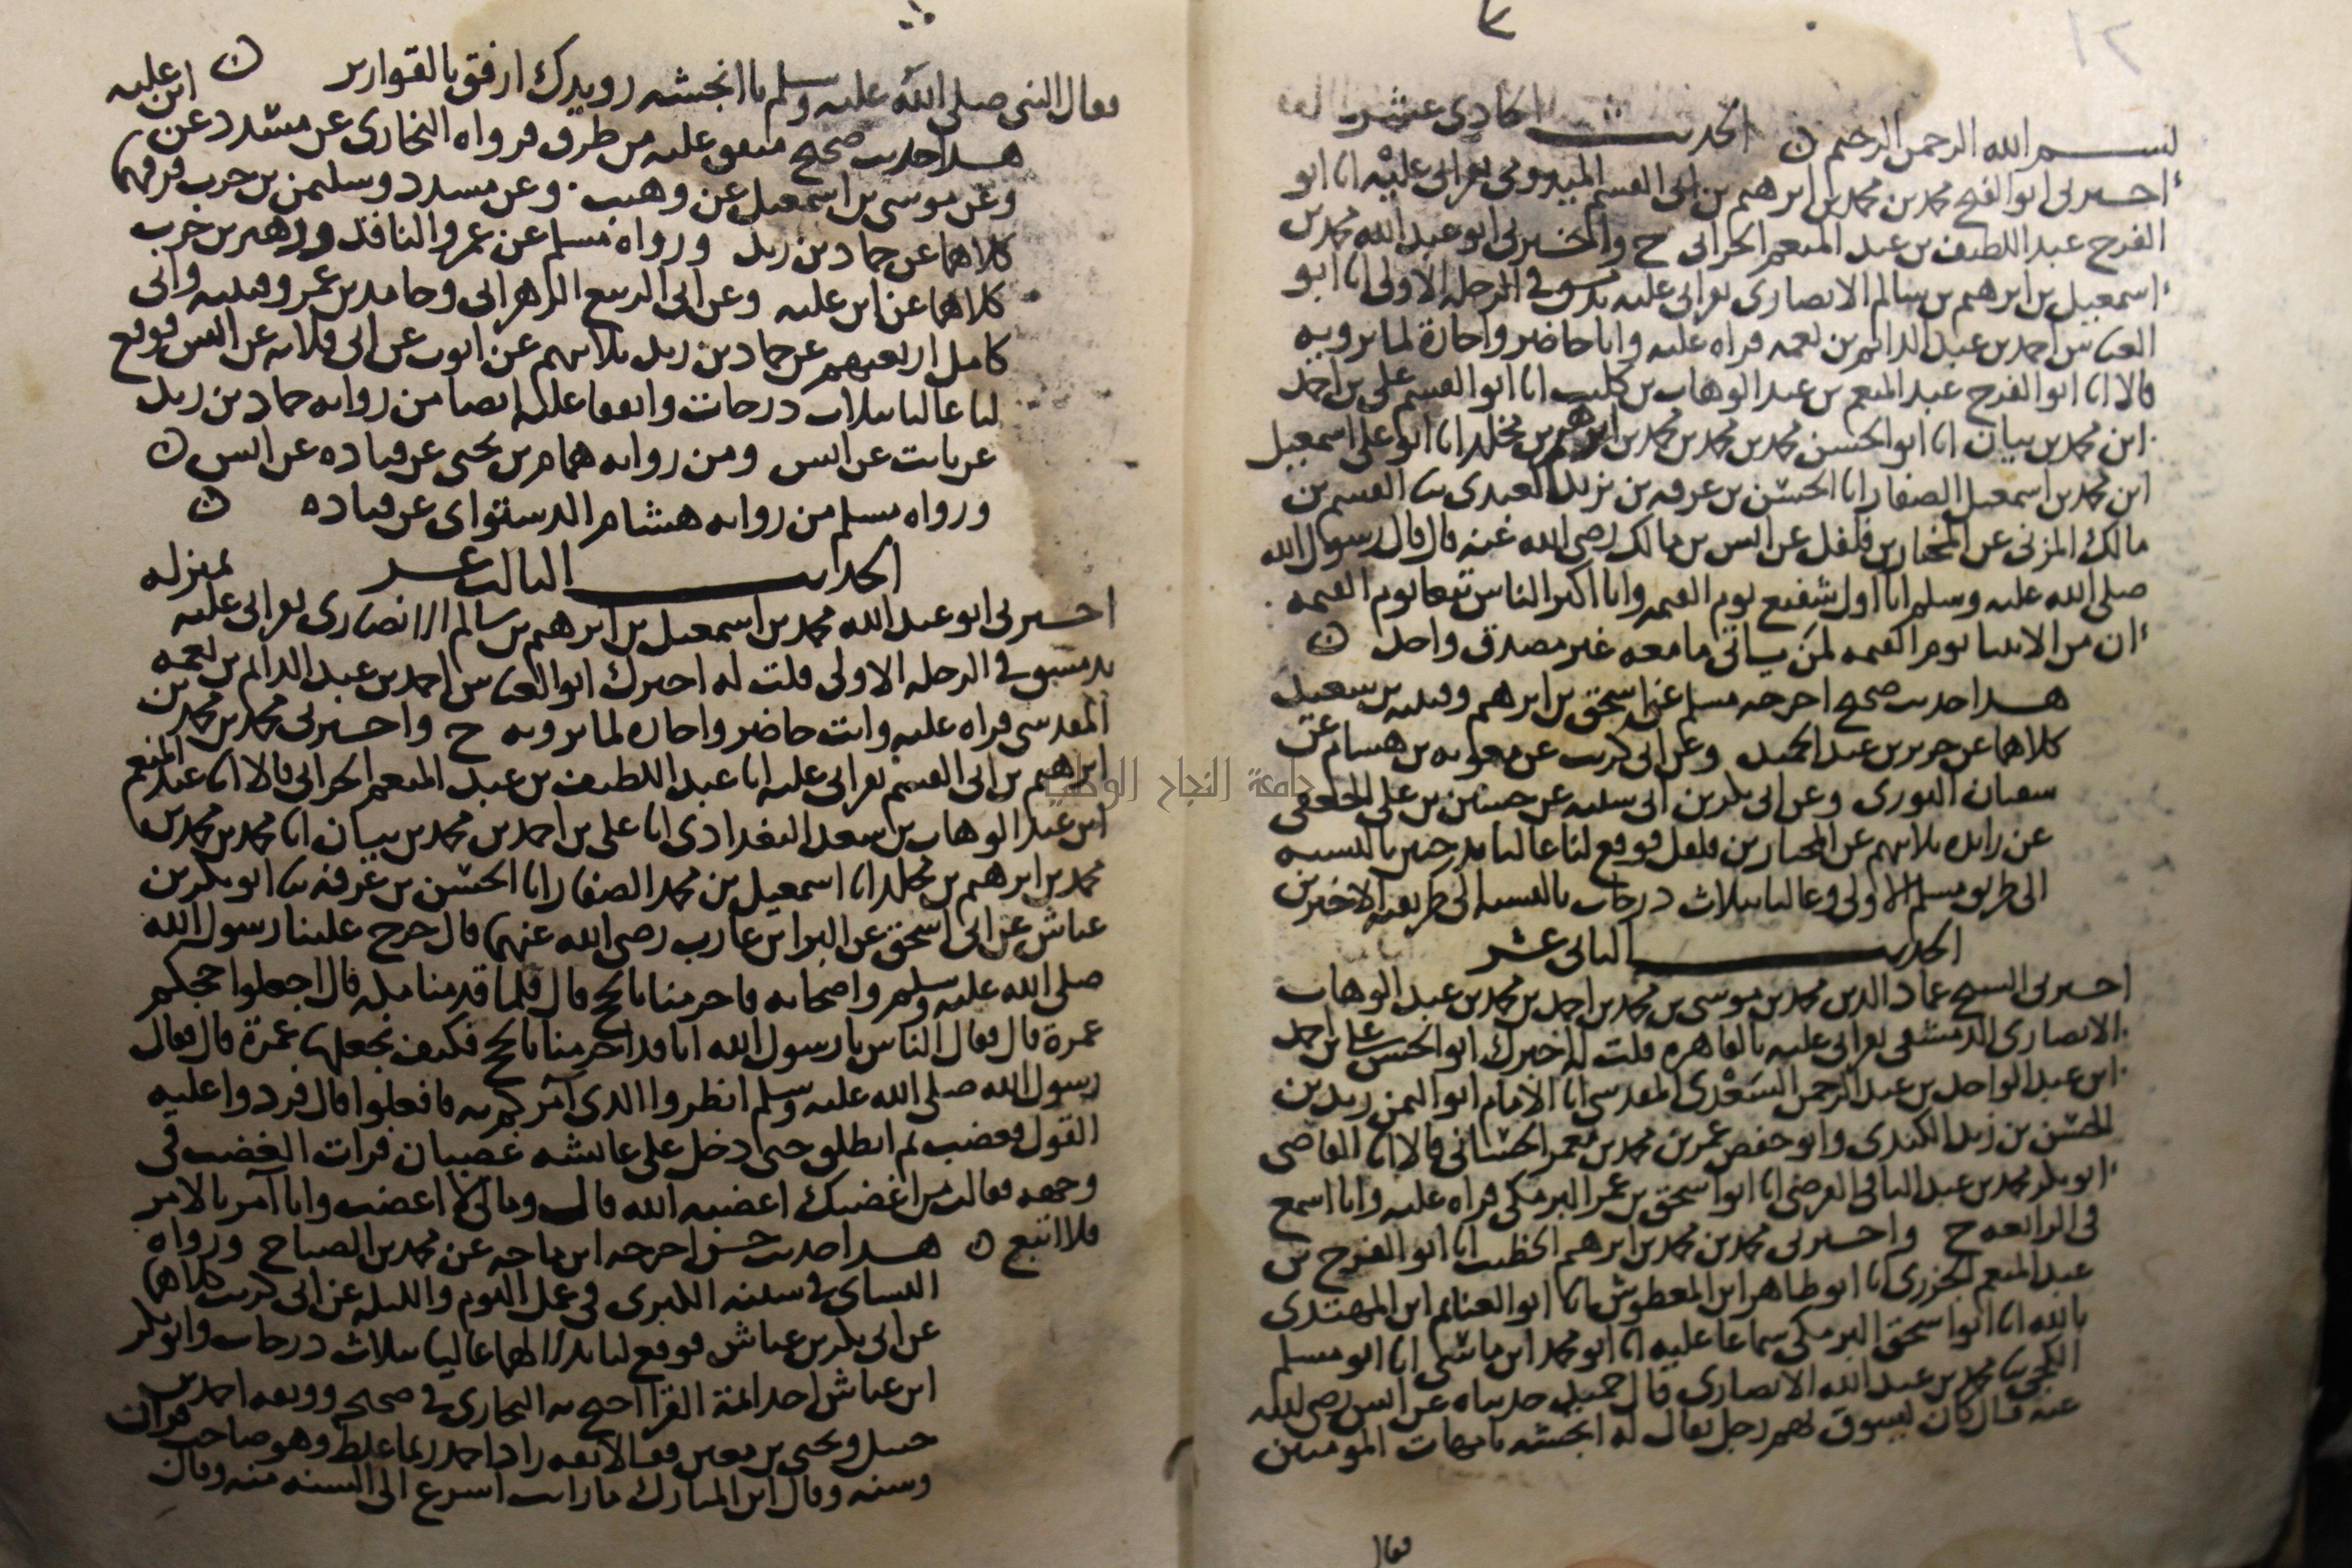 ١٢
بسم الله الرحمن الرحيم ن الحديث الحادي عشر
أخبرني ابو الفتح محمد بن محمد بن ابرهيم بن ابي القسم الميدومي بقراتي عليه انا ابو
الفرج عبد اللطيف بن عبد المنعم الحراني ح واخبرني ابو عبد الله محمد بن
اسمعيل بن ابرهيم بن سالم الانصاري بقراتي عليه بدمشق في الرحلة الاولى انا ابو
العباس احمد بن عبد الدايم بن نعمه قراه عليه وانا حاضر واجازة لما يرويه
قالا انا ابو الفرج عبد المنعم بن عبد الوهاب بن كليب انا ابو القسم علي بن احمد
ابن محمد بن بيان انا ابو الحسن محمد بن محمد بن محمد بن ابرهيم بن مخلد انا ابو علي اسمعيل
ابن محمد بن اسمعيل الصفار انا الحسن بن عرفه بن يزيد العبدي ثنا القسم بن
مالك المزني عن المختار بن فلفل عن انس بن مالك رضي الله عنه قال قال رسول الله
صلى الله عليه وسلم انا اول شفيع يوم القيمه وانا اكثر الناس تبعا يوم القيمه
ان من الانبيا يوم القيمه لمن ياتي ما معه غير مصدق واحد ن
هذا حديث صحيح اخرجه مسلم عن اسحق بن ابرهيم وقتيبه بن سعيد
كلاهما عن جرير بن عبد الحميد وعن ابي كريب عن معويه بن هشام عن
سفيان الثوري وعن ابي بكر بن ابي شيبه عن حسين بن علي الجعفي
عن زايده ثلاثتهم عن المختار بن فلفل فوقع لنا عاليا بدرجتين بالنسبه
الى طريق مسلم الاولى وعاليا بثلاث درجات بالنسبه الى طريقيه الاخيرين
الحديث الثاني عشر
اخبرني الشيخ عماد الدين محمد بن موسى بن محمد بن احمد بن محمد بن عبد الوهاب
الانصاري الدمشقي بقراتي عليه بالقاهره قلت له اخبرك ابو الحسن علي بن احمد
ابن عبد الواحد بن عبد الرحمن السعدي المقدسي انا الامام ابو اليمن زيد بن
الحسن بن زيد الكندي وابو حفص عمر بن محمد بن معمر الحساني قالا انا القاضي
ابو بكر محمد بن عبد الباقي الفرضي انا ابو اسحق بن عمر البرمكي قراه عليه وانا اسمع
في الرابعه ح واخبرني محمد بن محمد بن ابرهيم الخطيب انا ابو الفرج بن
عبد المنعم الجزري انا ابو طاهر ابن المعطوش انا ابو الغنايم ابن المهتدي
بالله انا ابو اسحق البرمكي سماعا عليه انا ابو محمد ابن ماسي انا ابو مسلم
الكجي ثنا محمد بن عبد الله الانصاري قال حميد حدثناه عن انس رضي الله
عنه قال كان يسوق بهم رجل يقال له انجشه بامهات المومنين
فقال
فقال النبي صلى الله عليه وسلم يا انجشه رويدك ارفق بالقوارير ن
هذا حديث صحيح متفق عليه من طرق فرواه البخاري عن مسدد عن ابن عليه
وعن موسى بن اسمعيل عن وهيب وعن مسدد وسليمن بن حرب فرقهما
كلاهما عن حماد بن زيد ورواه مسلم عن عمرو الناقد وزهير بن حرب
كلاهما عن ابن عليه وعن ابي الربيع الزهراني وحامد بن عمر وقتيبه وابي
كامل اربعتهم عن حماد بن زيد ثلاثتهم عن ايوب عن ابي قلابه عن انس فوقع
لنا عاليا بثلاث درجات واتفقا عليه ايضا من روايه حماد بن زيد
عن ثابت عن انس ومن روايه همام بن يحيى عن قتاده عن انس ن
ورواه مسلم من روايه هشام الدستواى عن قتاده ن
الحديث الثالث عشر
اخبرني ابو عبد الله محمد بن اسمعيل بن ابرهيم بن سالم الانصاري بقراتي عليه بمنزله
بدمشق في الرحله الاولى قلت له اخبرك ابو العباس احمد بن عبد الدايم بن نعمه
المقدسي قراه عليه وانت حاضر واجازه لما يرويه ح واخبرني محمد بن محمد بن
ابرهيم بن ابي القسم بقراتي عليه انا عبد اللطيف بن عبد المنعم الحراني قالا انا عبد المنعم
ابن عبد الوهاب بن سعد البغدادي انا علي بن احمد بن محمد بن بيان انا محمد بن محمد بن
محمد بن ابرهيم بن مخلد انا اسمعيل بن محمد الصفار انا الحسن بن عرفه ثنا ابو بكر بن
عياش عن ابي اسحق عن البرا بن عازب رضي الله عنهما قال خرج علينا رسول الله
صلى الله عليه وسلم واصحابه فاحرمنا بالحج قال فلما قدمنا مكه قال اجعلوا حجكم
عمرة قال فقال الناس يا رسول الله انا قد احرمنا بالحج فكيف نجعلها عمرة قال فقال
رسول الله صلى الله عليه وسلم انظروا الذي آمركم به فافعلوا قال فردوا عليه
القول فغضب ثم انطلق حتى دخل على عائشه غضبان فرات الغضب في
وجهه فقالت من اغضبك اغضبه الله قال ومالي لا اغضب وانا آمر بالامر
فلا اتبع ن هذا حديث حسن اخرجه ابن ماجه عن محمد بن الصباح ورواه
النساى في سننه الكبرى في عمل اليوم والليله عن ابي كريب كلاهما
عن ابي بكر بن عياش فوقع لنا بدلا لهما عاليا بثلاث درجات وابو بكر
ابن عياش احد ائمة القرا احتج به البخاري في صحيحه ووثقه احمد بن
حنبل ويحيى بن معين فقالا ثقه زاد احمد ربما غلط وهو صاحب قران
وسنه وقال ابن المبارك ما رايت اسرع الى السنه منه وقال
جامعة النجاح الوطنية